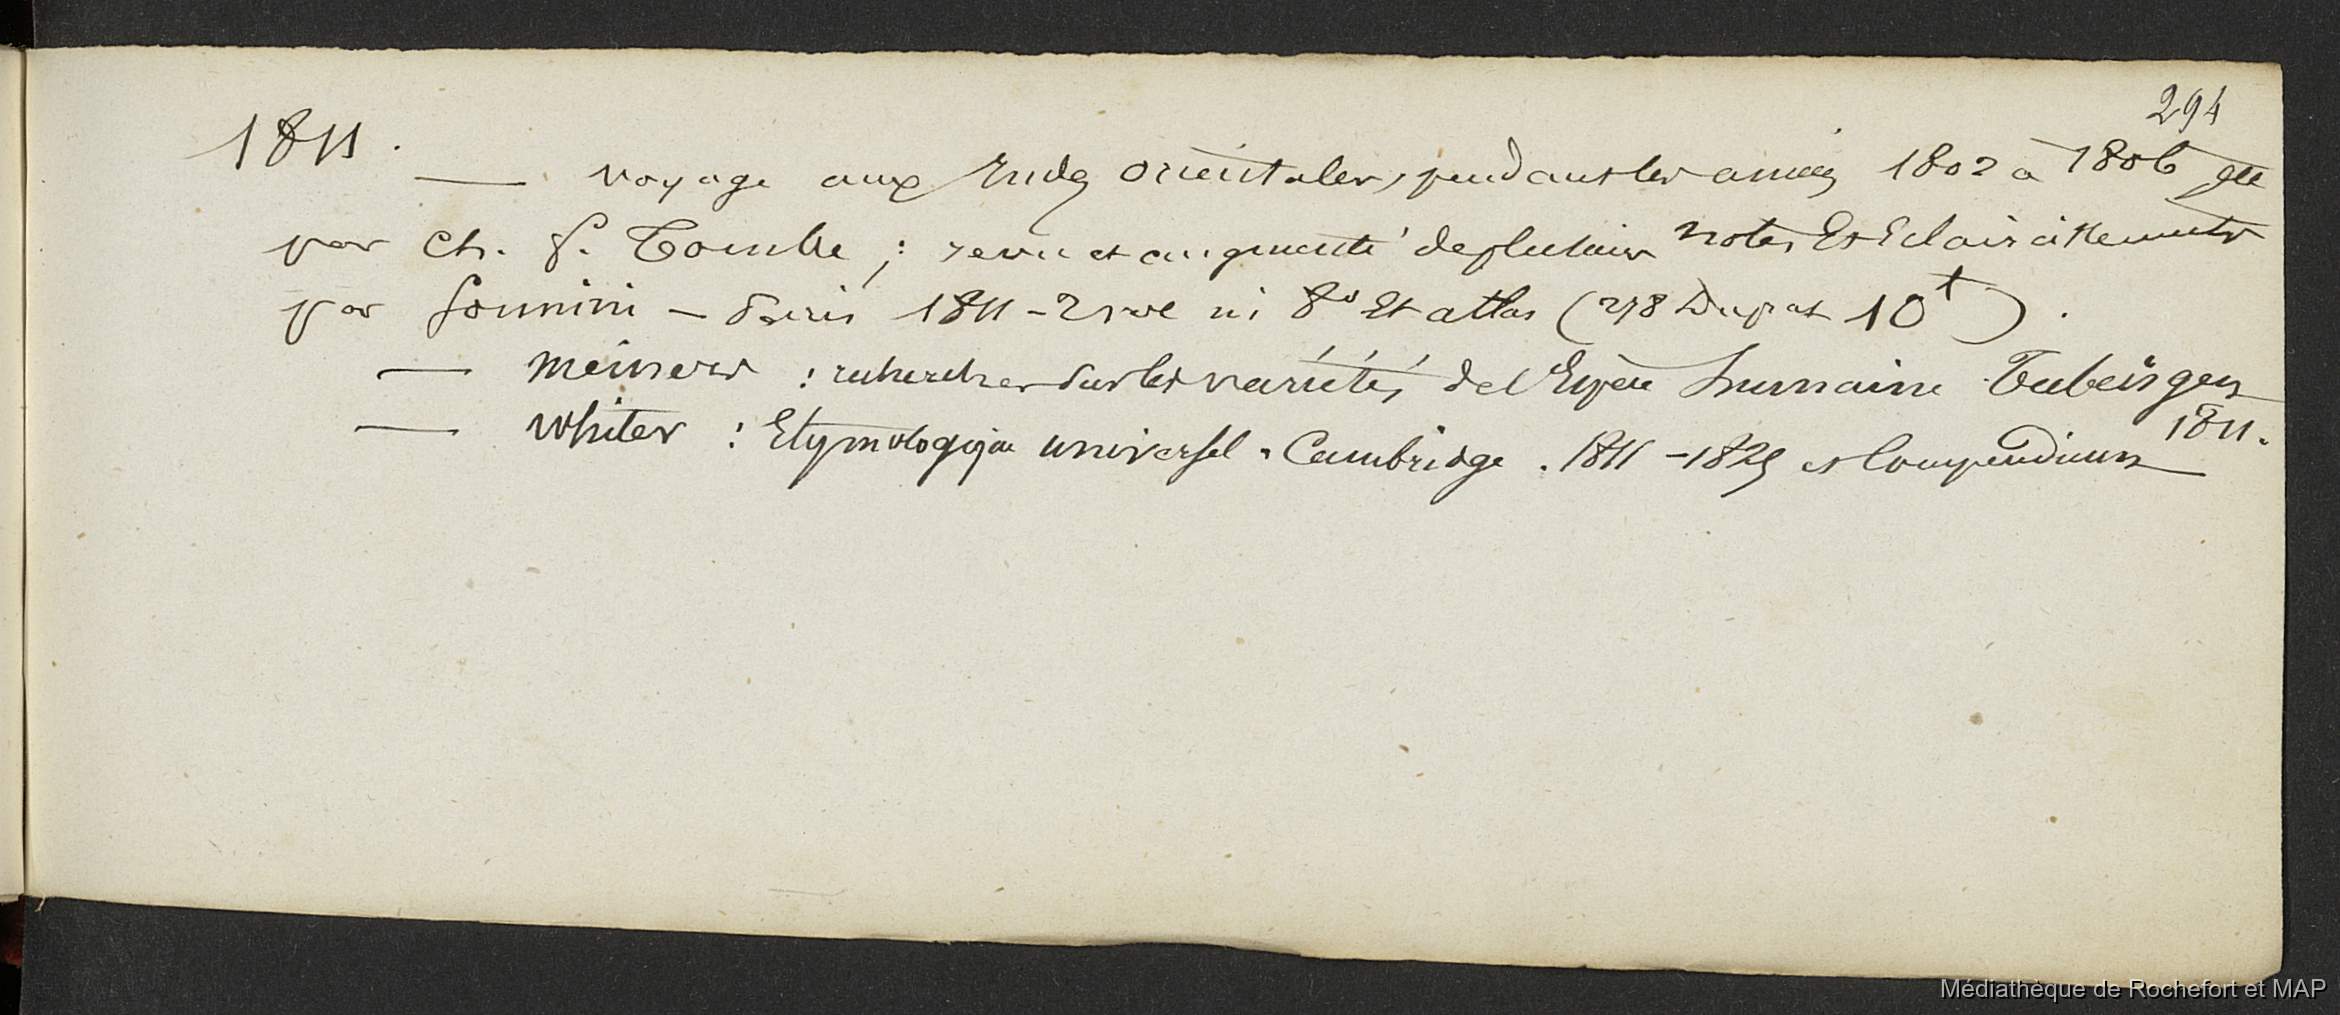 294
1811.
— voyage aux Indes orientales, pendant les années 1802 à 1806 etc
par Ch. F. Tombe ; revu et augmenté de plusieurs notes Et Eclaircissements
par Sonnini – Paris 1811 – 2 vol in 8° Et atlas (278 Duprat 10 f) .
— meiners : recherches sur les variétés de l'Espèce humaine Tubeingen
1811.
— Whiter : Etymologique universel . Cambridge . 1811 – 1825 et Compendium
Médiathèque de Rochefort et MAP